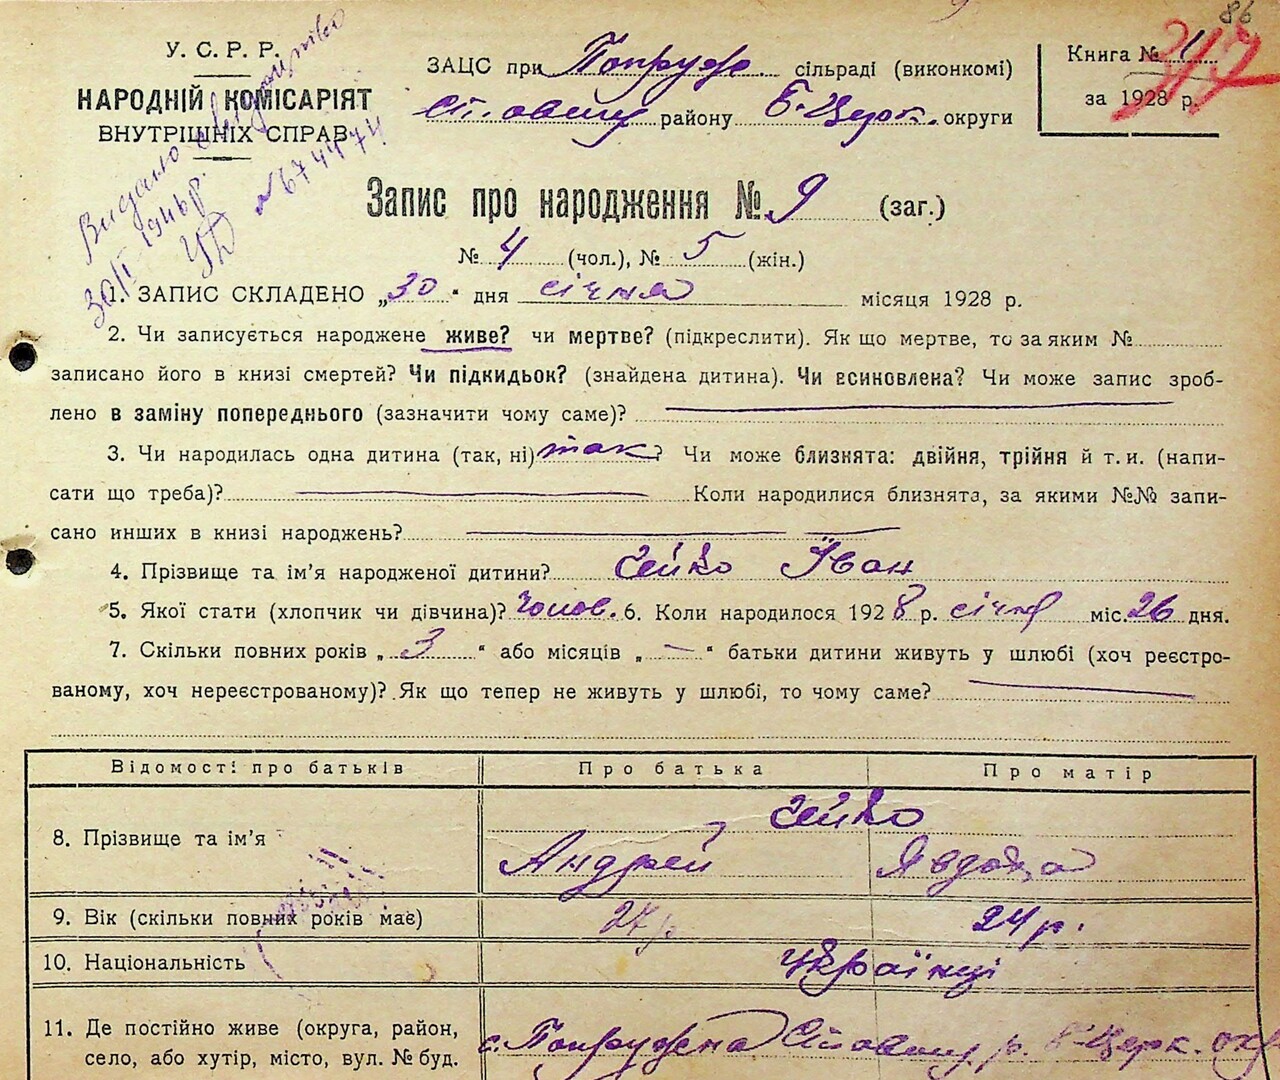 86
У. С. Р. Р.
НАРОДНІЙ КОМІСАРІЯТ
ВНУТРІШНІХ СПРАВ
Видано свідоцтво
30/І 1946 р.
№ 674474
ЗАЦС при Попруж. сільраді (виконкомі)
Ставищ. району Б-Церк. округи
Книга № 1
за 1928 р.
Запис про народження № 9 (заг.)
№ 4 (чол.), № 5 (жін.)
1. ЗАПИС СКЛАДЕНО „30" дня січня місяця 1928 р.
2. Чи записується народжене живе? чи мертве? (підкреслити). Як що мертве, то за яким №
записано його в книзі смертей? Чи підкидьок? (знайдена дитина). Чи всиновлена? Чи може запис зроб-
лено в заміну попереднього (зазначити чому саме)?
3. Чи народилась одна дитина (так, ні) так? Чи може близнята: двійня, трійня й т. и. (напи-
сати що треба)? Коли народилися близнята, за якими №№ запи-
сано инших в книзі народжень?
4. Прізвище та ім'я народженої дитини? Чейко Іван
5. Якої стати (хлопчик чи дівчина)? Чолов. 6. Коли народилося 1928 р. січня міс. 26 дня.
7. Скільки повних років „3" або місяців „—" батьки дитини живуть у шлюбі (хоч реєстро-
ваному, хоч нереєстрованому)? Як що тепер не живуть у шлюбі, то чому саме?
Відомості про батьків Про батька Про матір
8. Прізвище та ім'я Чейко
Андрей Явдоха
9. Вік (скільки повних років має) 27 р. 24 р.
10. Національність Українці
11. Де постійно живе (округа, район,
село, або хутір, місто, вул. № буд. с. Попружна Ставищ. р. Б-Церк. окр